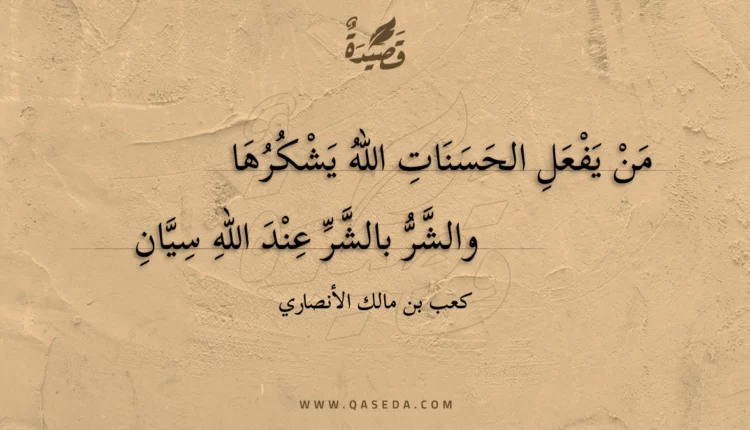 قَصِيدَةٌ
مَنْ يَفْعَلِ الحَسَنَاتِ اللهُ يَشْكُرُهَا
والشَّرُّ بالشَّرِّ عِنْدَ اللهِ سِيَّانِ
كعب بن مالك الأنصاري
WWW.QASEDA.COM